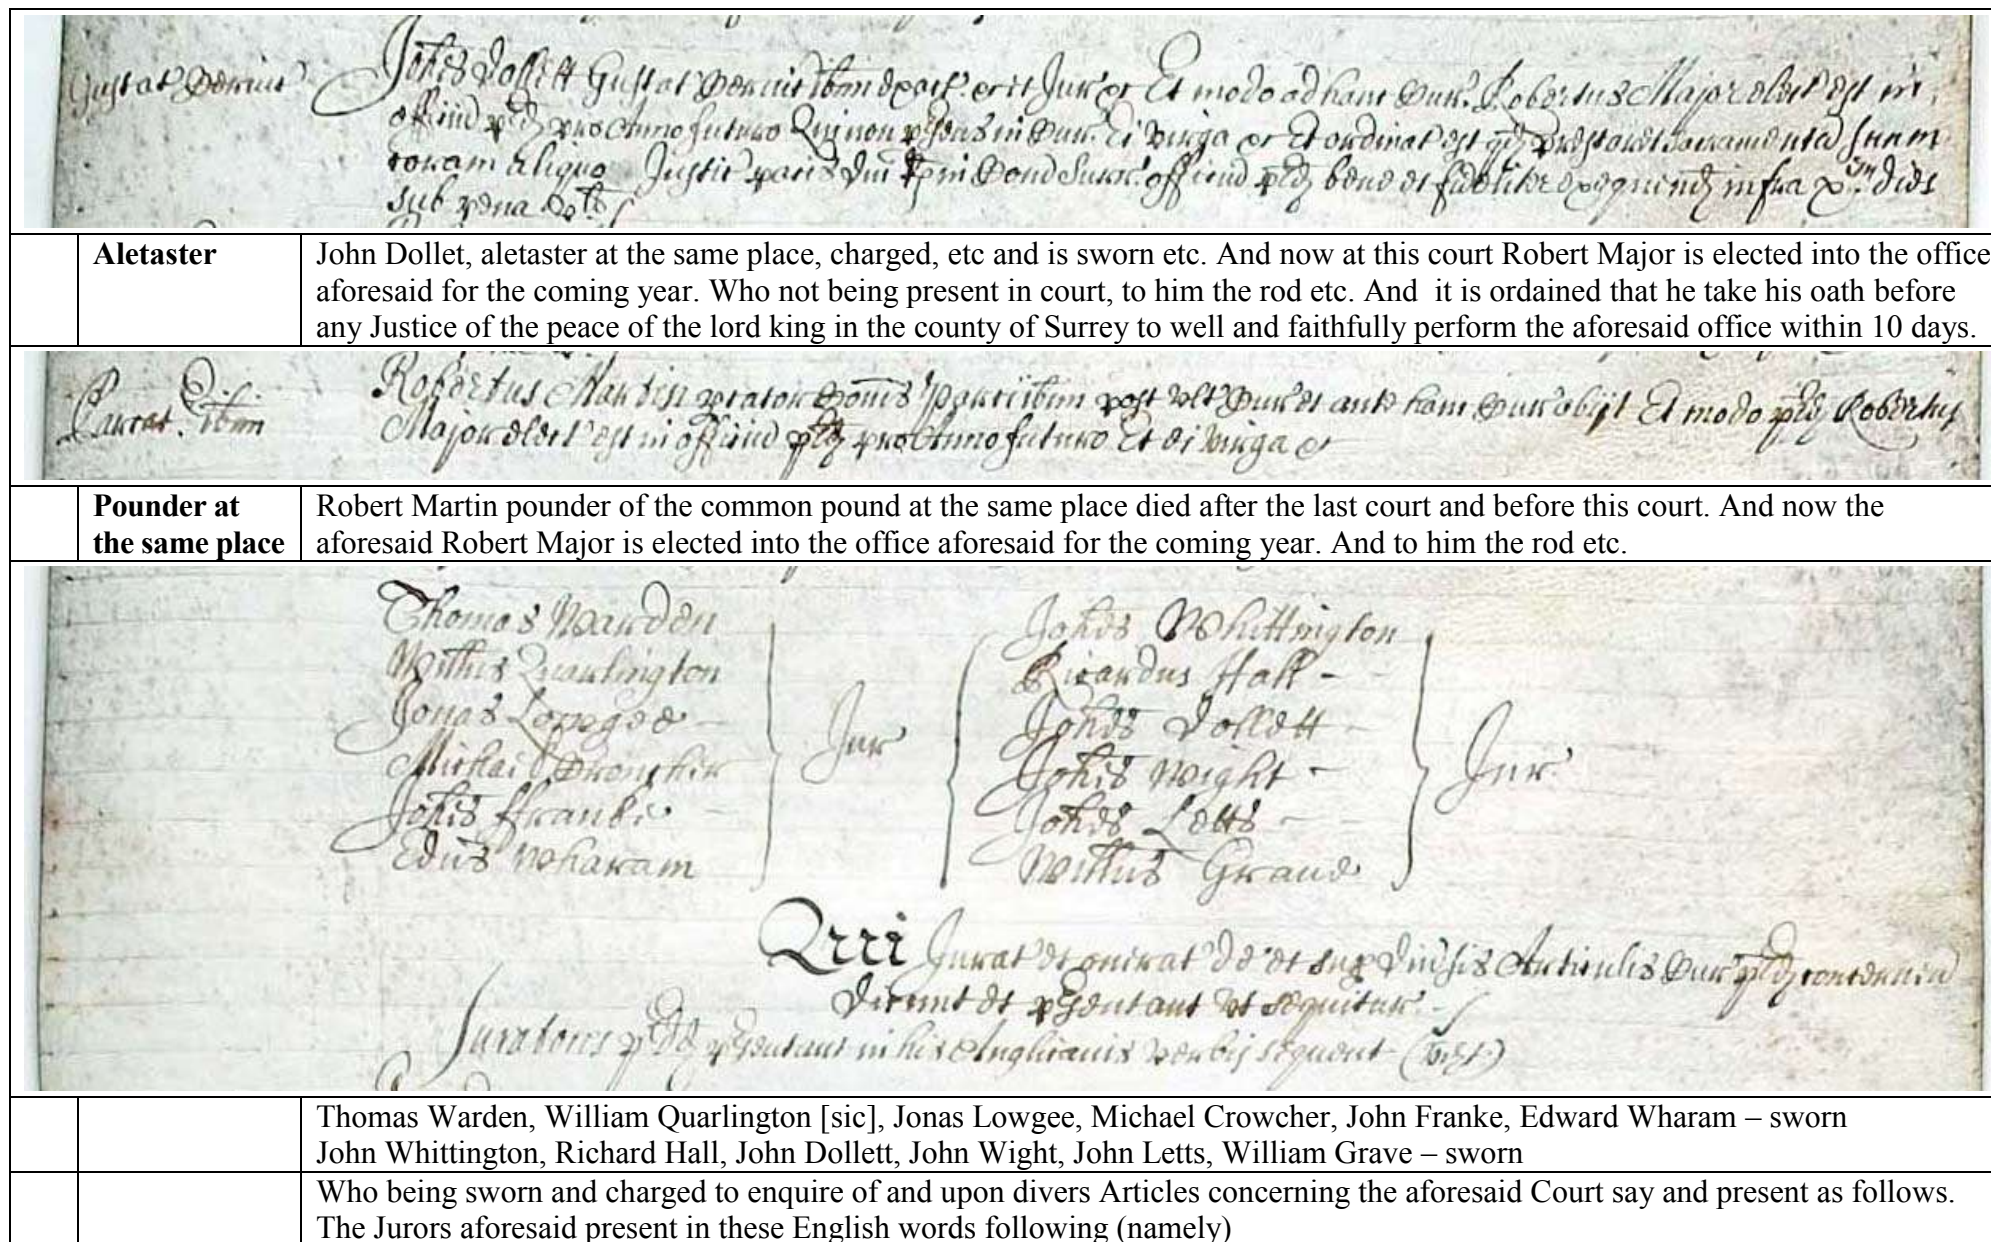 Gustat Cervic Johes Dollett Gustat Cervic ibm exact erit Jur &c Et modo ad hanc Cur. Robertus Major elect est in
officiu pred pro Anno futuro Qui non presens in Cur. Ei virga &c Et ordinat est qd prestaret sacramentu suum
coram aliquo Justic pacis Dni Com Surr. officiu pred bene et fideliter exequend infra x dies
sub pena
Aletaster John Dollet, aletaster at the same place, charged, etc and is sworn etc. And now at this court Robert Major is elected into the office
aforesaid for the coming year. Who not being present in court, to him the rod etc. And it is ordained that he take his oath before
any Justice of the peace of the lord king in the county of Surrey to well and faithfully perform the aforesaid office within 10 days.
Robertus Martin Cois Parci ibm post ult Cur et ante hanc Cur obijt Et modo pred Robertus
Parcat. ibm Major elect est in officiu pred pro Anno futuro Et ei virga &c
Pounder at Robert Martin pounder of the common pound at the same place died after the last court and before this court. And now the
the same place aforesaid Robert Major is elected into the office aforesaid for the coming year. And to him the rod etc.
Thomas Warden Johes Whittington
Willus Quarlington Ricardus Hall
Jonas Lowgee Johes Dollett
Jur Jur
Michael Crowcher Johes Wight
Johes ffranke Johes Letts
Edus Wharam Willus Grave
Qui Jurat et onerat de et sup divsis Articulis Cur pred concernen
Dicunt et psentant ut sequitur
Juratores pred psentant in his Anglicanis verbis sequent (vizt)
Thomas Warden, William Quarlington [sic], Jonas Lowgee, Michael Crowcher, John Franke, Edward Wharam – sworn
John Whittington, Richard Hall, John Dollett, John Wight, John Letts, William Grave – sworn
Who being sworn and charged to enquire of and upon divers Articles concerning the aforesaid Court say and present as follows.
The Jurors aforesaid present in these English words following (namely)